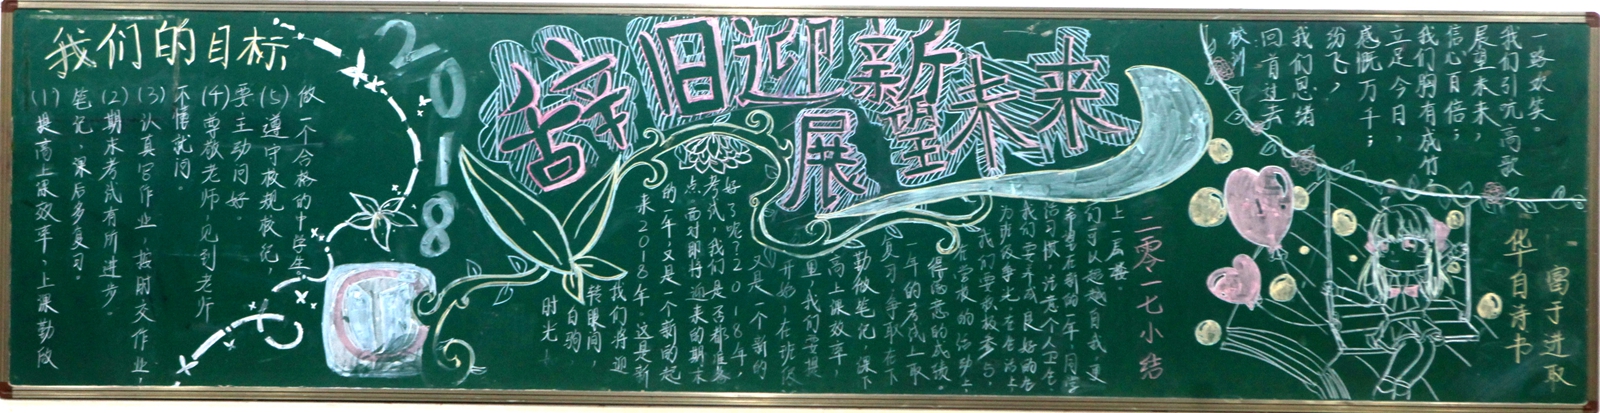 我们的目标
(1)提高上课效率,上课勤做
笔记,课后多复习。
(2)期末考试有所进步。
(3)认真写作业,按时交作业,
不懂就问。
(4)尊敬老师,见到老师
要主动问好。
(5)遵守校规校纪,
做一个合格的中学生。
2018
辞旧迎新
展望未来
时光
白驹,
转眼间,
我们将迎
来2018年。这是新
的一年,又是一个新的起
点。面对即将迎来的期末
考试,我们是否都准备
好了呢?2018年,
又是一个新的
开始,在班级
里,我们要提
高上课效率,
勤做笔记,课下
复习,争取在下
一年的考试上取
得满意的成绩
在学校的活动上
我们要积极参与,
为班级争光。在生活上
我们要养成良好的生
活习惯,注意个人卫生
希望在新的一年,同学
们可以超越自我,更
上一层楼
二零一七小结
校训
回首过去
我们思绪
纷飞,
感慨万千;
立足今日,
我们胸有成竹
信心百倍;
展望未来,
我们引吭高歌
一路欢笑。
华自诗书
富于进取